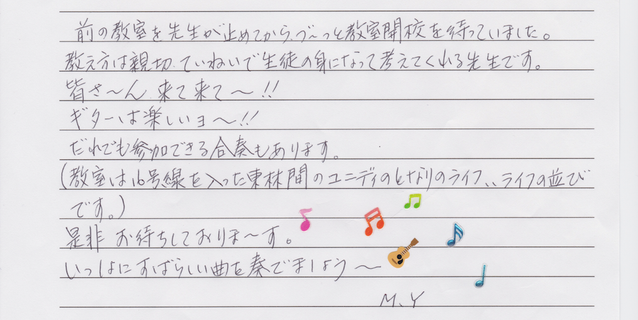 前の教室を先生が止めてから、づ～っと教室開校を待っていました。
教え方は親切、ていねいで生徒の身になって考えてくれる先生です。
皆さ～ん 来て来て～!!
ギターは楽しいョ～!!
だれでも参加できる合奏もあります。
(教室は16号線を入った東林間のユニディのとなりのライフ、、ライフの並び
です。)
是非 お待ちしておりま～す。
いっぱにすばらしい曲を奏でましょう～
M.Y